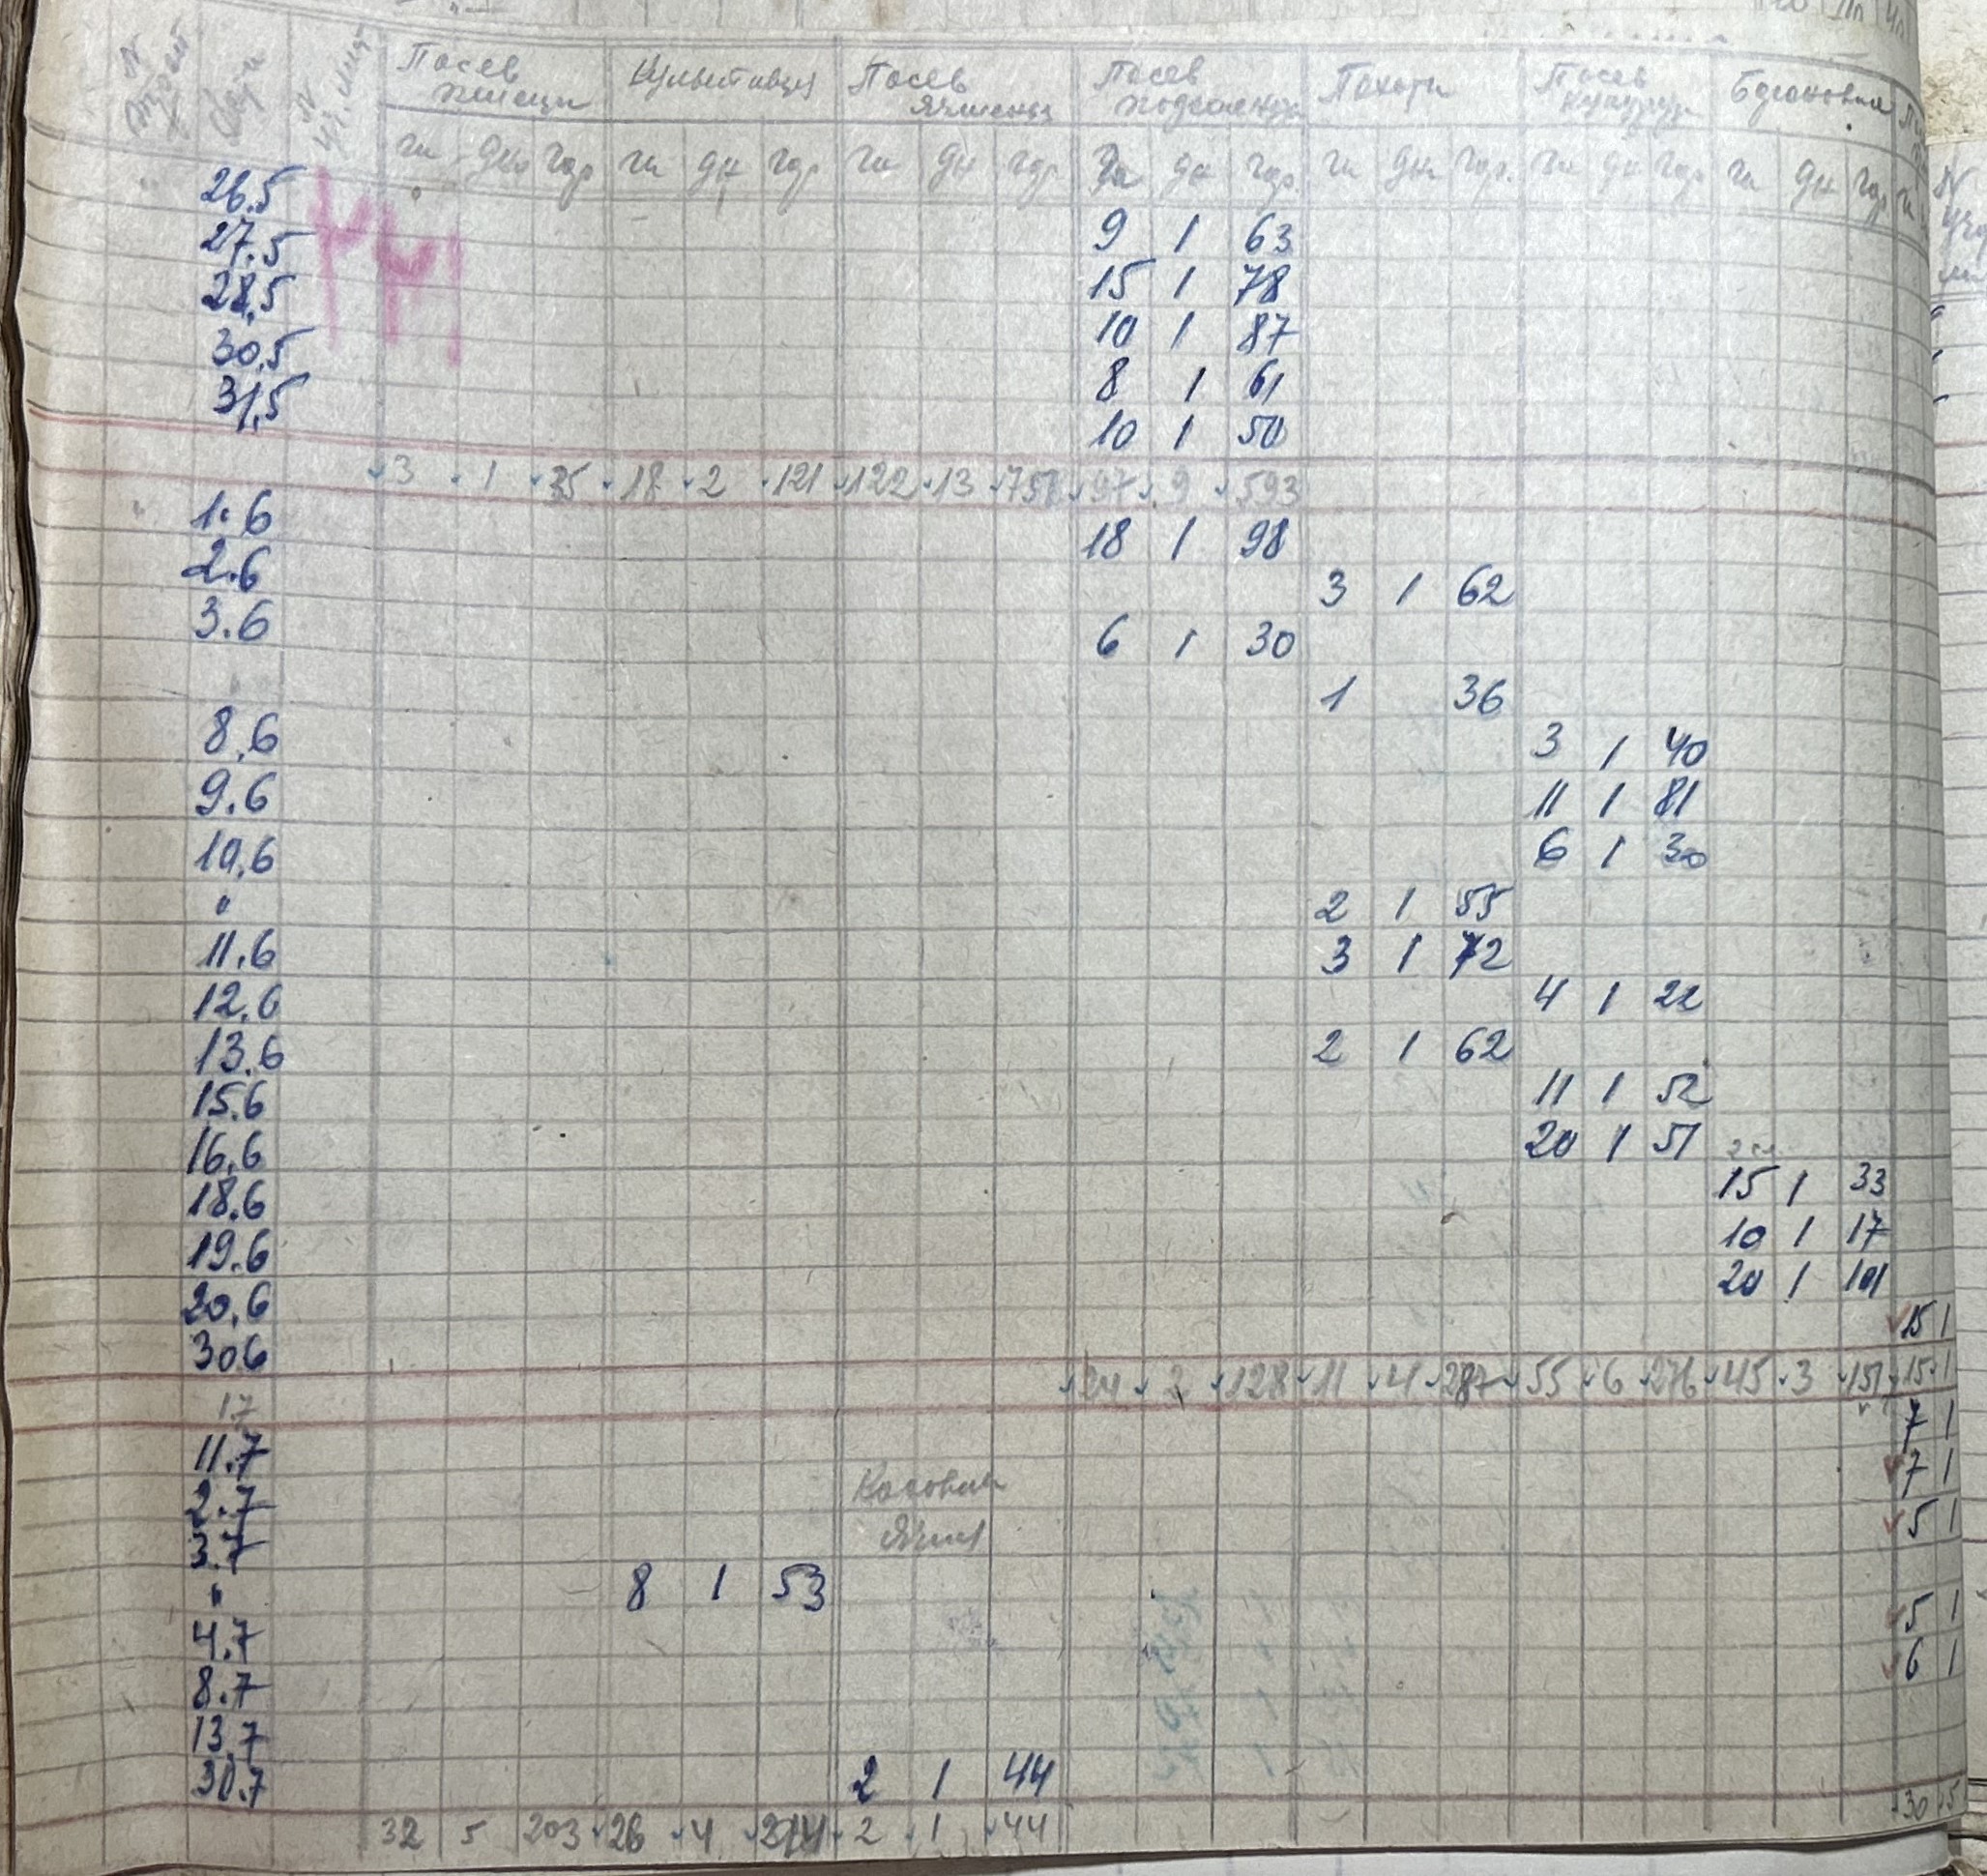 Посев Культивация Посев Посев Пахота Посев Бороновка
пшеницы ячменя подсолнух кукурузы
га дни гор га дн гор га дн гор га дн гор га дни гор. га дн гор га дн гор
26.5 9 1 63
27.5 15 1 78
28.5 10 1 87
30.5 8 1 61
31.5 10 1 50
3 1 35 18 2 121 122 13 97 9 593
1.6 18 1 98
2.6 3 1 62
3.6 6 1 30
" 1 36
8.6 3 1 40
9.6 11 1 81
10.6 6 1 30
" 2 1 55
11.6 3 1 72
12.6 4 1 22
13.6 2 1 62
15.6 11 1 52
16.6 20 1 51
18.6 15 1 33
19.6 10 1 17
20.6 20 1 101
30.6 15 1
24 2 128 11 4 287 55 6 276 45 3 151 15 1
17 7 1
11.7 7 1
2.7 5 1
3.7
" 8 1 53 5 1
4.7 6 1
8.7
13.7
30.7 2 1 44
32 5 203 26 4 2 1 44 30 5